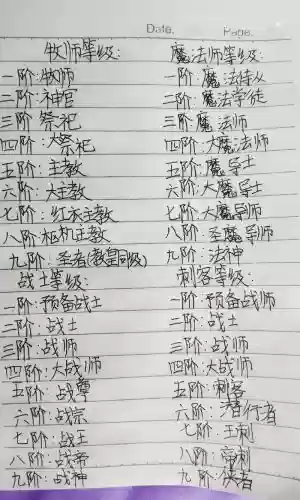 Date. Page.
牧师等级:
一阶:牧师
二阶:神官
三阶:祭祀
四阶:大祭祀
五阶:主教
六阶:大主教
七阶:红衣主教
八阶:枢机主教
九阶:圣者(教皇同级)
魔法师等级:
一阶:魔法徒从
二阶:魔法学徒
三阶:魔法师
四阶:大魔法师
五阶:魔导士
六阶:大魔导士
七阶:大魔导师
八阶:圣魔导师
九阶:法神
战士等级:
一阶:预备战士
二阶:战士
三阶:战师
四阶:大战师
五阶:战尊
六阶:战宗
七阶:战王
八阶:战帝
九阶:战神
刺客等级:
一阶:预备战师
二阶:战士
三阶:战师
四阶:大战师
五阶:刺客
六阶:潜行者
七阶:王刺
八阶:帝刺
九阶:侠者